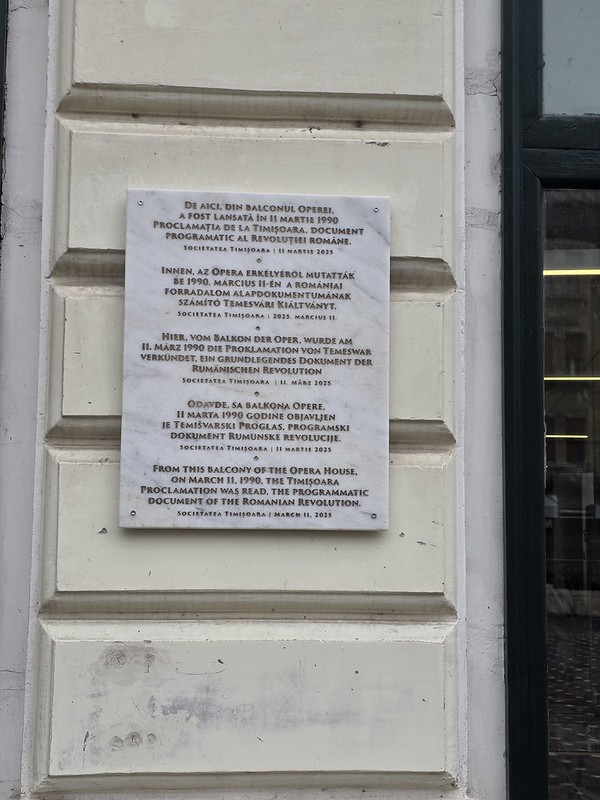 De aici, din balconul Operei,
a fost lansată în 11 martie 1990
Proclamația de la Timișoara, document
programatic al Revoluției Române.
Societatea Timișoara | 11 martie 2025
Innen, az Opera erkélyéről mutatták
be 1990. március 11-én a romániai
forradalom alapdokumentumának
számító Temesvári Kiáltványt.
Societatea Timișoara | 2025. március 11.
Hier, vom Balkon der Oper, wurde am
11. März 1990 die Proklamation von Temeswar
verkündet, ein grundlegendes Dokument der
Rumänischen Revolution
Societatea Timișoara | 11. März 2025
Odavde, sa balkona Opere,
11 marta 1990 godine objavljen
je Temišvarski Proglas, programski
dokument Rumunske revolucije.
Societatea Timișoara | 11 martie 2025
From this balcony of the Opera House,
on March 11, 1990, the Timișoara
Proclamation was read, the programmatic
document of the Romanian Revolution.
Societatea Timișoara | March 11, 2025